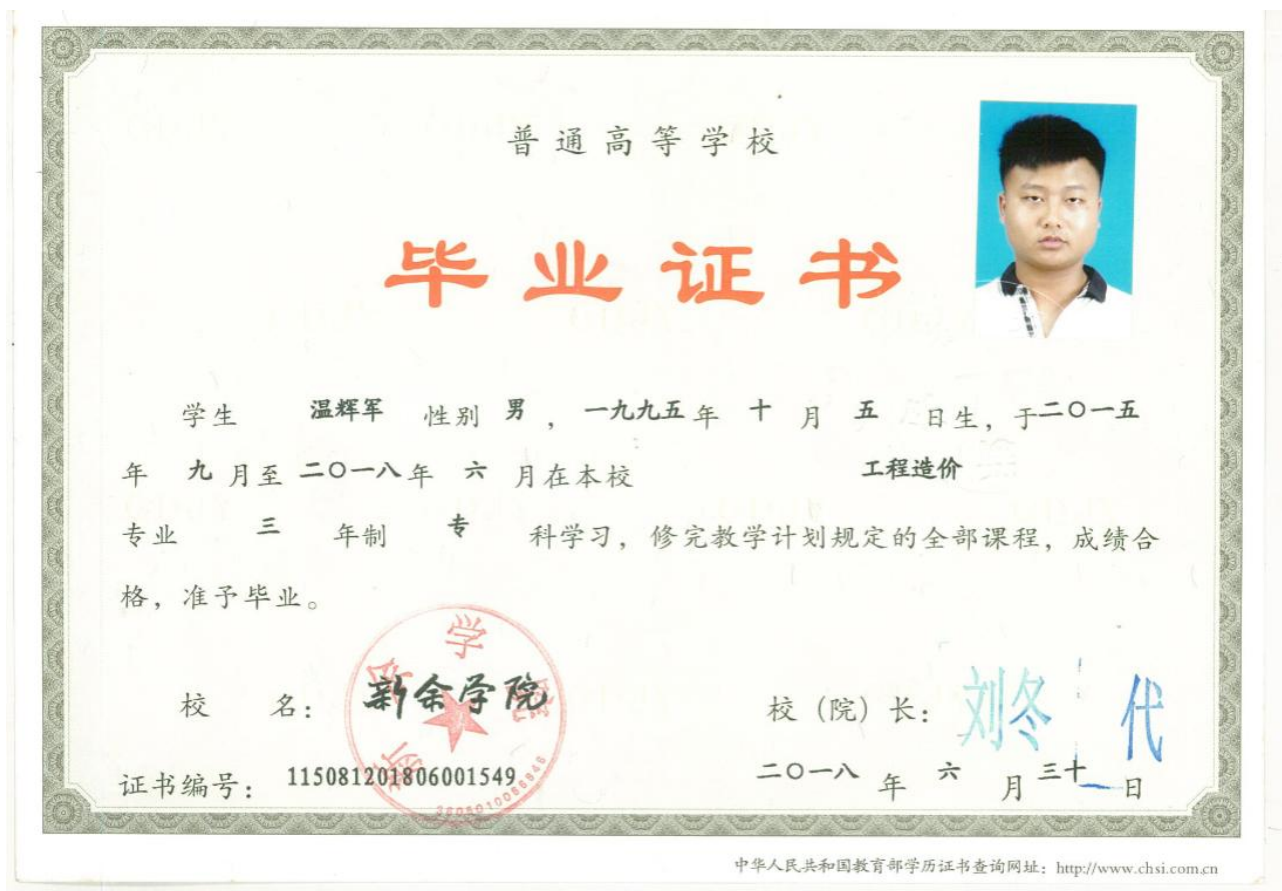 普通高等学校
毕业证书
学生 温辉军 性别 男 , 一九九五 年 十 月 五 日生, 于 二〇一五
年 九 月至 二〇一八 年 六 月在本校 工程造价
专业 三 年制 专 科学习, 修完教学计划规定的全部课程, 成绩合
格, 准予毕业。
校 名: 新余学院
校 (院) 长: 刘冬 代
证书编号: 115081201806001549
二〇一八 年 六 月 三十 日
中华人民共和国教育部学历证书查询网址: http://www.chsi.com.cn